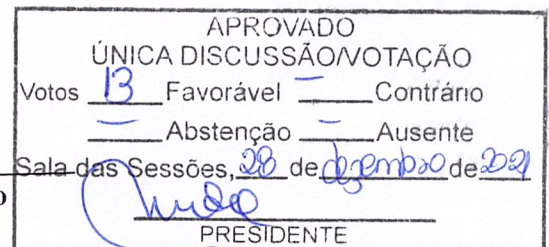 APROVADO
ÚNICA DISCUSSÃO/VOTAÇÃO
Votos 13 Favorável — Contrário
— Abstenção — Ausente
Sala das Sessões, 28 de dezembro de 2021
PRESIDENTE